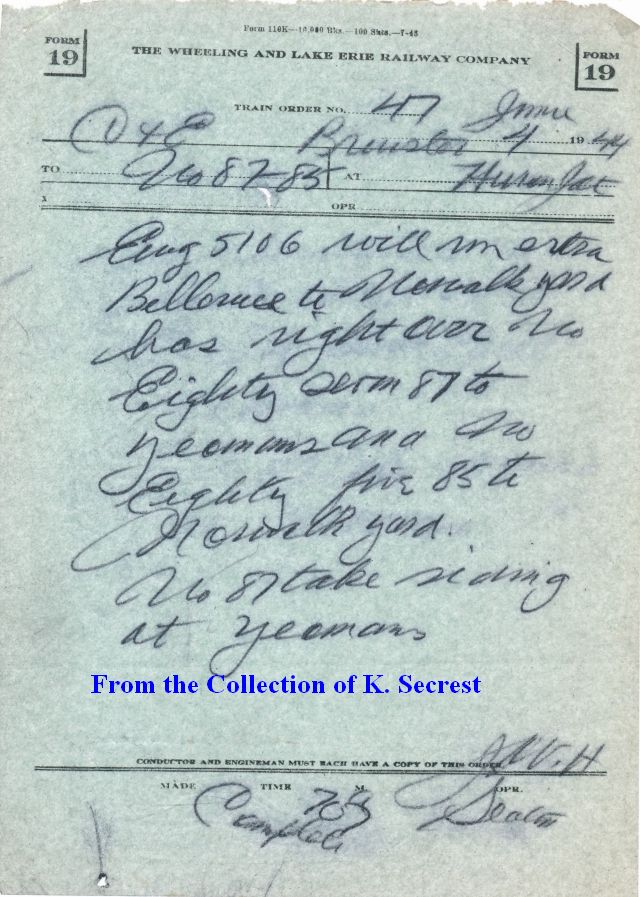 Form 110K—10,000 Bks.—100 Shts.—7-43
FORM
19
THE WHEELING AND LAKE ERIE RAILWAY COMPANY
FORM
19
TRAIN ORDER NO. 47 June
C & E Brewster 4 1944
TO No 87-85 AT Huron Jct
X OPR.
Eng 5106 will run extra
Bellevue to Norwalk yard
has right over No
Eighty seven 87 to
yeomans and No
Eighty five 85 to
Norwalk yard.
No 87 take siding
at yeomans
From the Collection of K. Secrest
J.W.H
CONDUCTOR AND ENGINEMAN MUST EACH HAVE A COPY OF THIS ORDER
MADE TIME M. OPR.
705